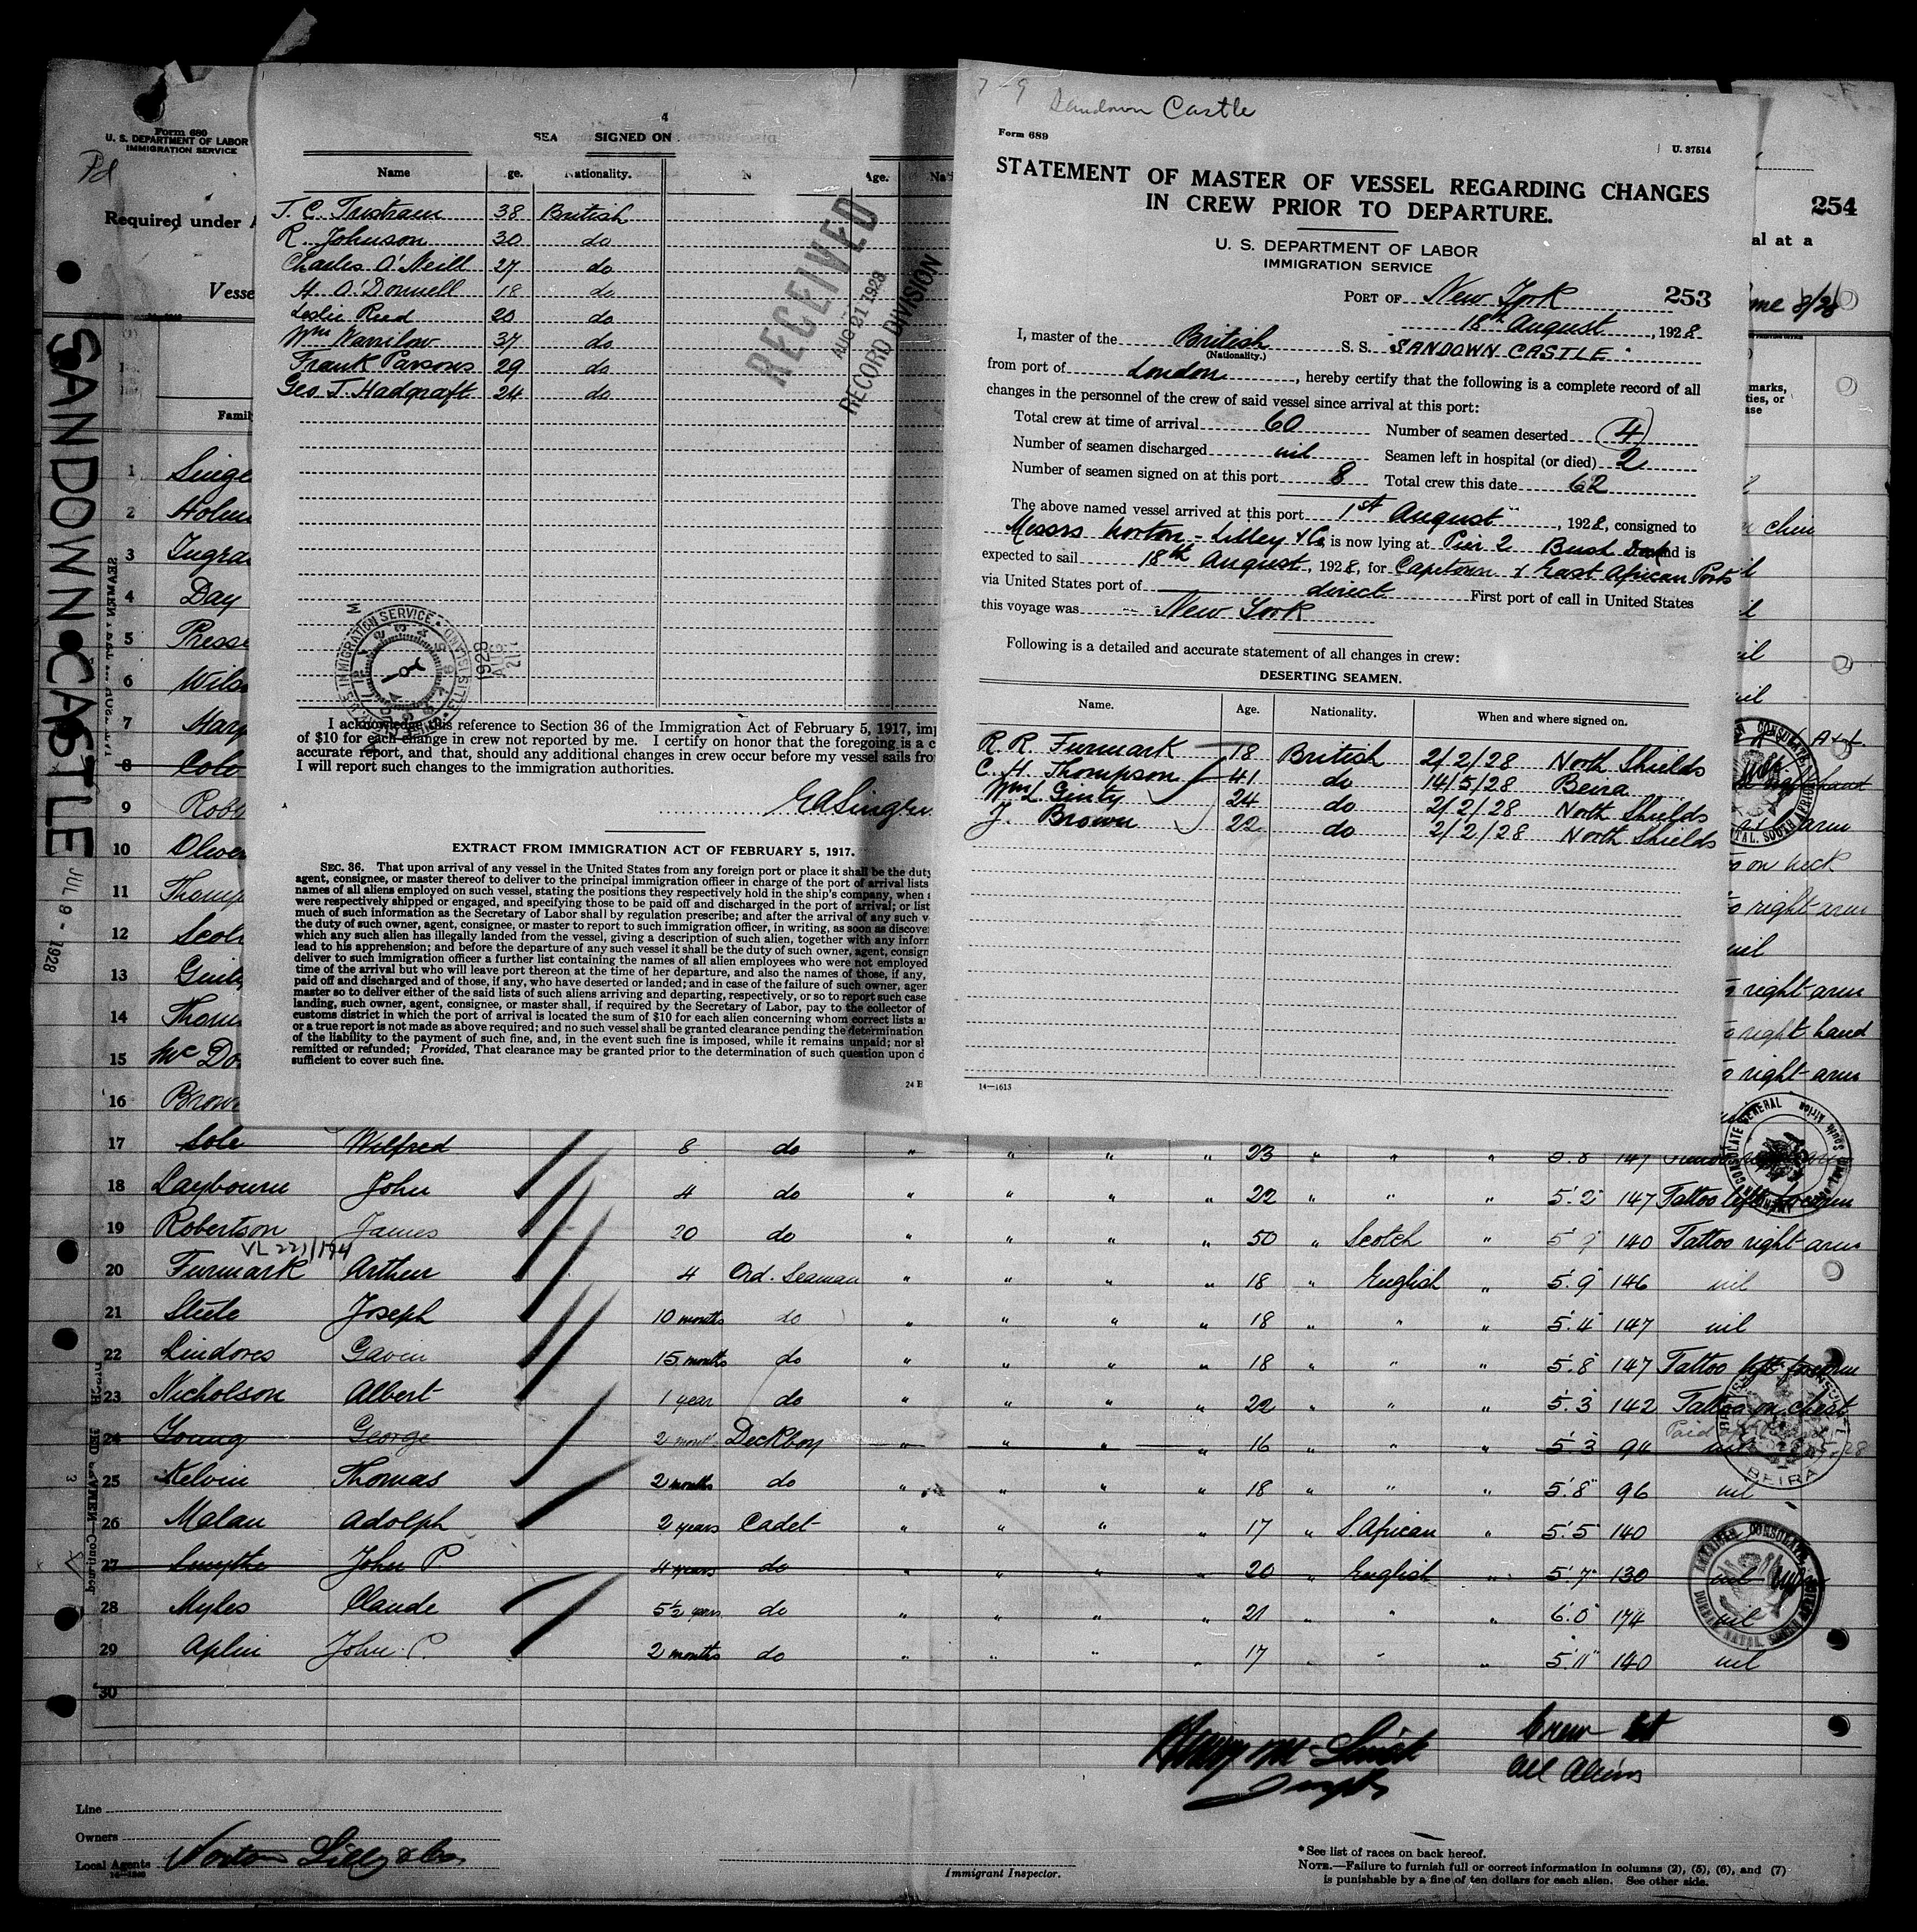 7-9 Sandown Castle
Form 689
U. 37514
STATEMENT OF MASTER OF VESSEL REGARDING CHANGES
IN CREW PRIOR TO DEPARTURE.
U. S. DEPARTMENT OF LABOR
IMMIGRATION SERVICE
PORT OF New York 253
18th August, 1928
I, master of the British S. S. SANDOWN CASTLE
(Nationality.)
from port of London, hereby certify that the following is a complete record of all
changes in the personnel of the crew of said vessel since arrival at this port:
Total crew at time of arrival 60 Number of seamen deserted 4
Number of seamen discharged nil Seamen left in hospital (or died) 2
Number of seamen signed on at this port 8 Total crew this date 62
The above named vessel arrived at this port 1st August, 1928, consigned to
Messrs Norton-Lilley & Co, is now lying at Pier 2 Bush Dock and is
expected to sail 18th August, 1928, for Capetown & East African Ports
via United States port of direct First port of call in United States
this voyage was New York
Following is a detailed and accurate statement of all changes in crew:
DESERTING SEAMEN.
Name. Age. Nationality. When and where signed on.
R. R. Furmark 18 British 2/2/28 North Shields
C. H. Thompson 41 do 14/5/28 Beira
Wm L. Ginty 24 do 2/2/28 North Shields
J. Brown 22 do 2/2/28 North Shields
14—1613
4
SEA SIGNED ON
Name ge. Nationality. N Age. Na
J. C. Tristram 38 British
R. Johnson 30 do
Charles O'Neill 27 do
H. O'Donnell 18 do
Leslie Reed 20 do
Wm Warrilow 37 do
Frank Parsons 29 do
Geo. T. Hadgraft 24 do
RECEIVED
AUG 21 1928
RECORD DIVISION
I acknowledge this reference to Section 36 of the Immigration Act of February 5, 1917, imp
of $10 for each change in crew not reported by me. I certify on honor that the foregoing is a c
accurate report, and that, should any additional changes in crew occur before my vessel sails fro
I will report such changes to the immigration authorities.
EXTRACT FROM IMMIGRATION ACT OF FEBRUARY 5, 1917.
SEC. 36. That upon arrival of any vessel in the United States from any foreign port or place it shall be the duty
agent, consignee, or master thereof to deliver to the principal immigration officer in charge of the port of arrival lists
names of all aliens employed on such vessel, stating the positions they respectively hold in the ship's company, when a
were respectively shipped or engaged, and specifying those to be paid off and discharged in the port of arrival; or list
much of such information as the Secretary of Labor shall by regulation prescribe; and after the arrival of any such v
the duty of such owner, agent, consignee, or master to report to such immigration officer, in writing, as soon as discove
which any such alien has illegally landed from the vessel, giving a description of such alien, together with any inform
lead to his apprehension; and before the departure of any such vessel it shall be the duty of such owner, agent, consign
deliver to such immigration officer a further list containing the names of all alien employees who were not employed
time of the arrival but who will leave port thereon at the time of her departure, and also the names of those, if any,
paid off and discharged and of those, if any, who have deserted or landed; and in case of the failure of such owner, agen
master so to deliver either of the said lists of such aliens arriving and departing, respectively, or so to report such case
landing, such owner, agent, consignee, or master shall, if required by the Secretary of Labor, pay to the collector of
customs district in which the port of arrival is located the sum of $10 for each alien concerning whom correct lists a
or a true report is not made as above required; and no such vessel shall be granted clearance pending the determination
of the liability to the payment of such fine, and, in the event such fine is imposed, while it remains unpaid; nor sh
remitted or refunded; Provided, That clearance may be granted prior to the determination of such question upon d
sufficient to cover such fine.
Form 680
U. S. DEPARTMENT OF LABOR
IMMIGRATION SERVICE
Required under A
Vesse
254
al at a
Famil
SANDOWN CASTLE
JUL 9 - 1928
1 Singe
2 Holm
3 Ingra
4 Day
5 Presse
6 Wils
7 Harp
8 Colo
9 Robe
10 Olive
11 Thomp
12 Scol on neck
13 Gint right arm
14 Thom right hand
15 McDo right arm
16 Brow
17 Sole Wilfred 8 do " " " " 23 " " " 5.8 147
18 Laybourn John 4 do " " " " 22 " " " 5.2" 147 Tattoo left forearm
19 Robertson James 20 do " " " " 50 " Scotch " 140 Tattoo right arm
VL 221/194
20 Furmark Arthur 4 Ord. Seaman " " " " 18 " English " 5.9" 146 nil
21 Steele Joseph 10 months do " " " " 18 " " " 5.4" 147 nil
22 Lindores Gavin 15 months do " " " " 18 " " " 5.8" 147 Tattoo left forearm
23 Nicholson Albert 1 year do " " " " 22 " " " 5.3 142 Tattoo on chest
24 Young George 2 months Deckboy " " " " 16 " " " 5.3 94 nil
25 Kelvin Thomas 2 months do " " " " 18 " " " 5.8" 96 nil
26 Malan Adolph 2 years Cadet " " " " 17 " S African " 5.5" 140
27 Smythe John P. 4 years do " " " " 20 " English " 5.7" 130 nil
28 Myles Claude 5½ years do " " " " 21 " " " 6.0" 174 nil
29 Aplin John P. 2 months do " " " " 17 " " " 5.11" 140 nil
30
All Aliens
Line
Owners
Local Agents Norton Lilly & Co
Immigrant Inspector.
*See list of races on back hereof.
NOTE.—Failure to furnish full or correct information in columns (2), (5), (6), and (7)
is punishable by a fine of ten dollars for each alien. See other side.